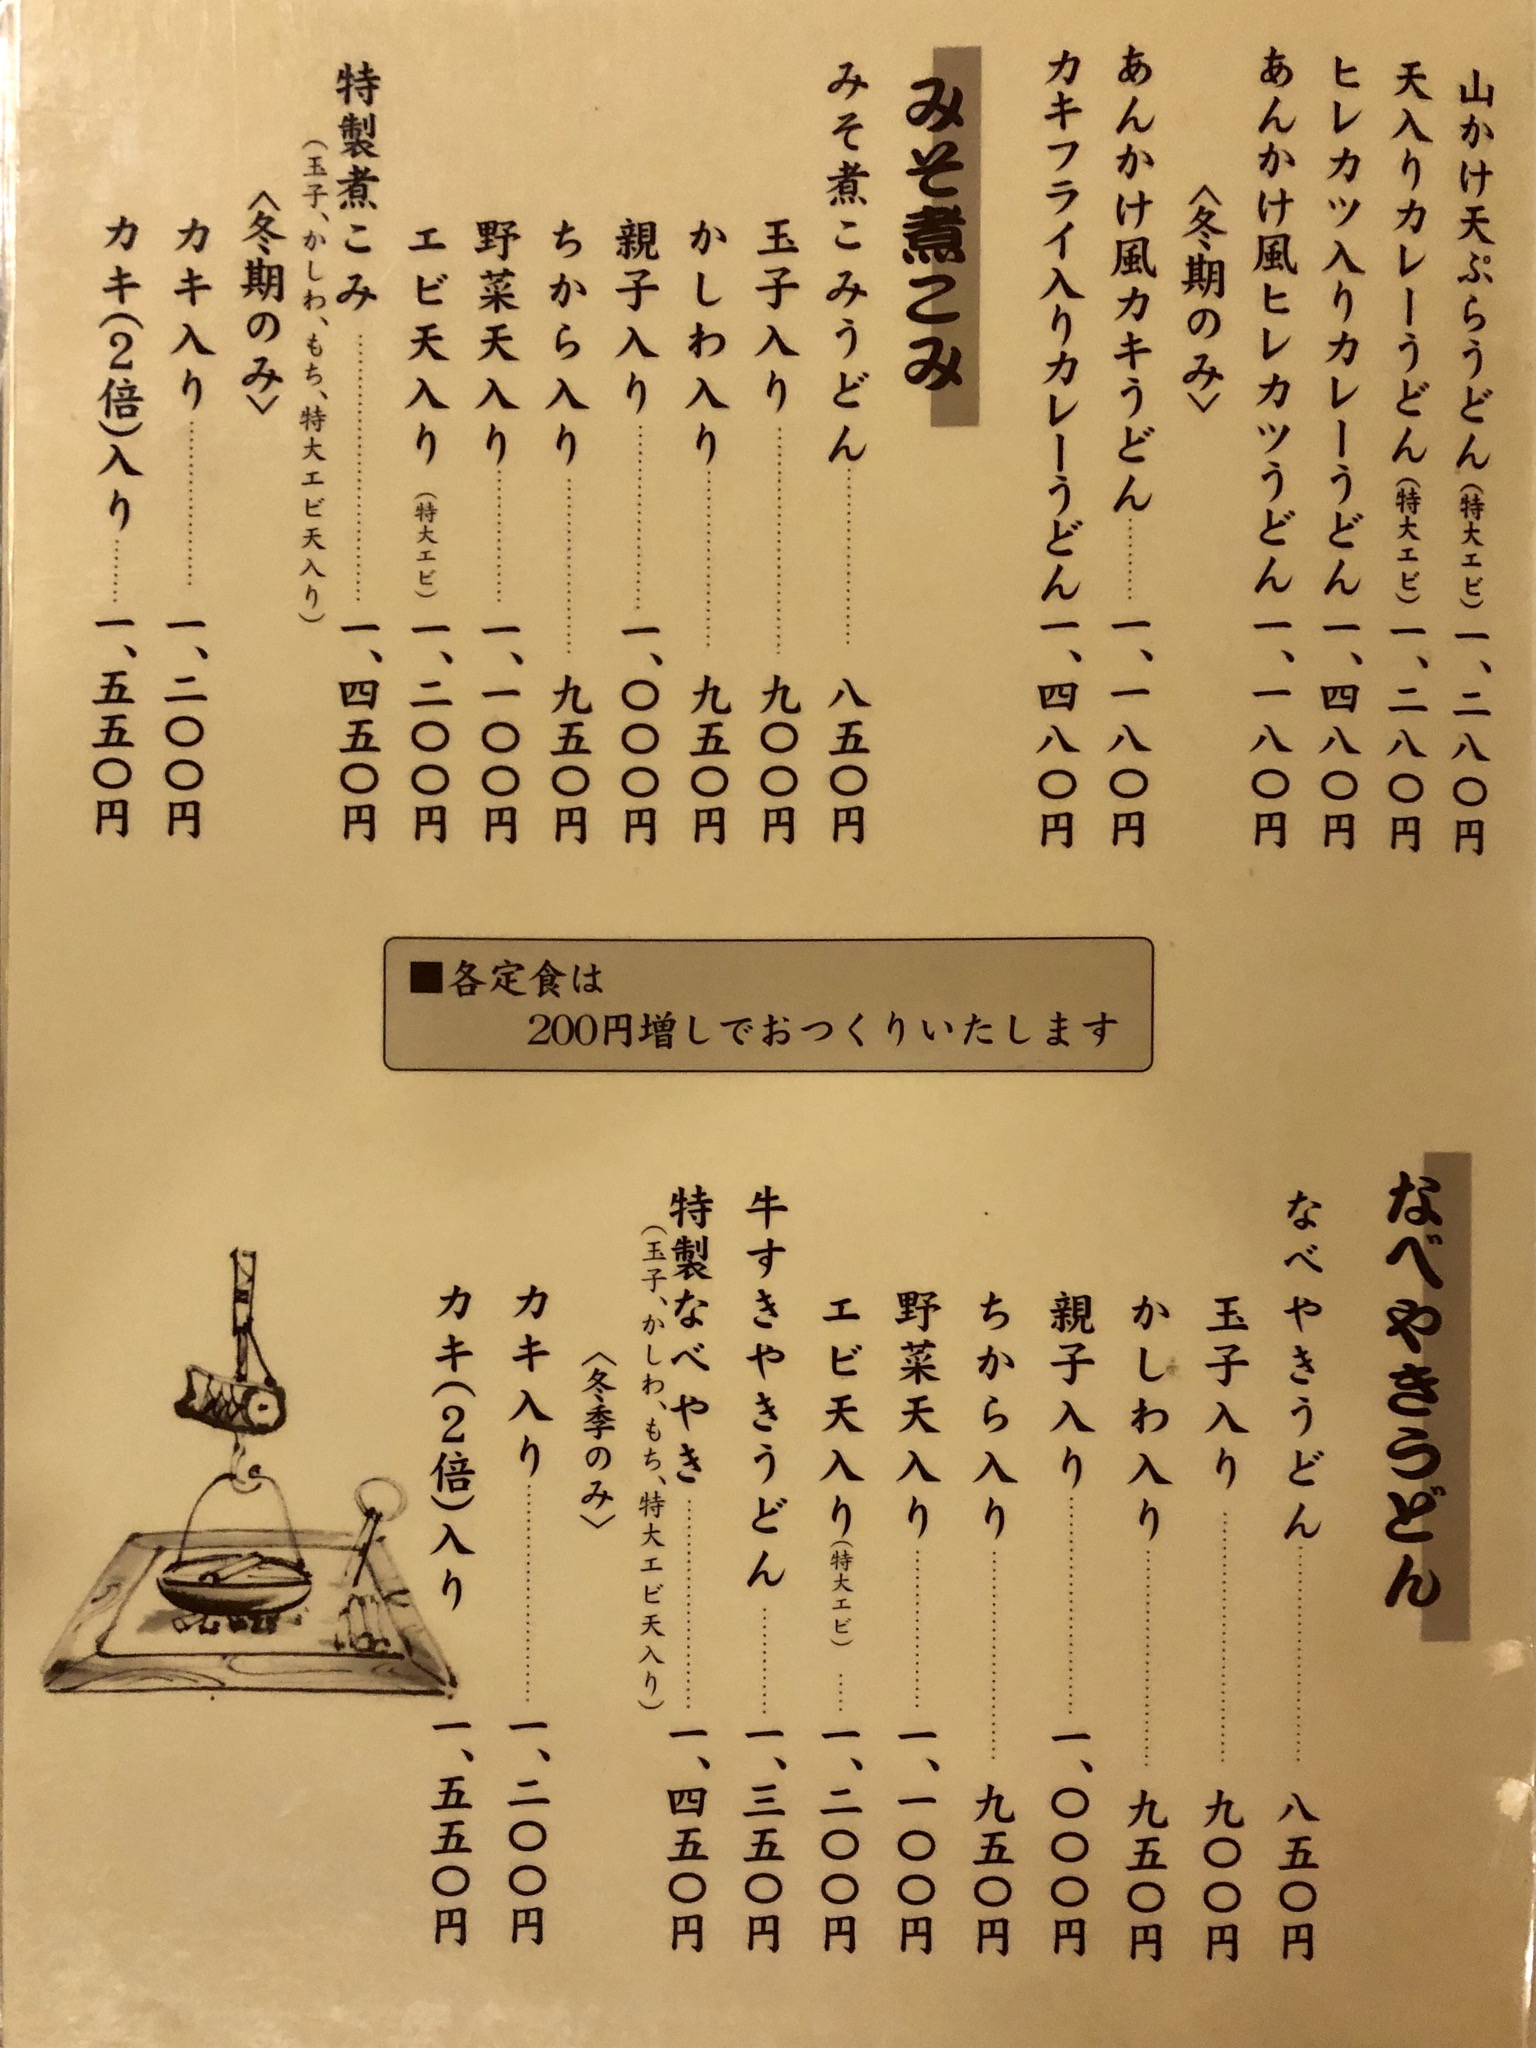 山かけ天ぷらうどん(特大エビ)一、二八〇円
天入りカレーうどん(特大エビ)一、二八〇円
ヒレカツ入りカレーうどん一、四八〇円
あんかけ風ヒレカツうどん一、一八〇円
〈冬期のみ〉
あんかけ風カキうどん……一、一八〇円
カキフライ入りカレーうどん一、四八〇円
みそ煮こみ
みそ煮こみうどん……八五〇円
玉子入り……九〇〇円
かしわ入り……九五〇円
親子入り……一、〇〇〇円
ちから入り……九五〇円
野菜天入り……一、一〇〇円
エビ天入り(特大エビ)一、二〇〇円
特製煮こみ……一、四五〇円
(玉子、かしわ、もち、特大エビ天入り)
〈冬期のみ〉
カキ入り……一、二〇〇円
カキ(2倍)入り……一、五五〇円
■各定食は
200円増しでおつくりいたします
なべやきうどん
なべやきうどん……八五〇円
玉子入り……九〇〇円
かしわ入り……九五〇円
親子入り……一、〇〇〇円
ちから入り……九五〇円
野菜天入り……一、一〇〇円
エビ天入り(特大エビ)……一、二〇〇円
牛すきやきうどん……一、三五〇円
特製なべやき……一、四五〇円
(玉子、かしわ、もち、特大エビ天入り)
〈冬季のみ〉
カキ入り……一、二〇〇円
カキ(2倍)入り 一、五五〇円